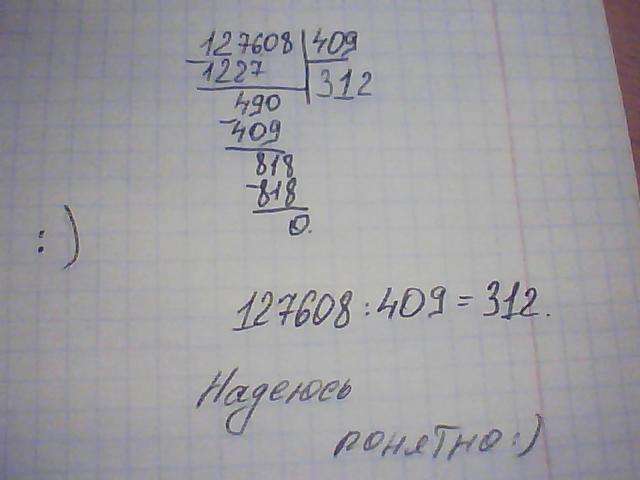 127608 409
1227 312
490
409
818
818
0.
:)
127608 : 409 = 312.
Надеюсь
понятно :)